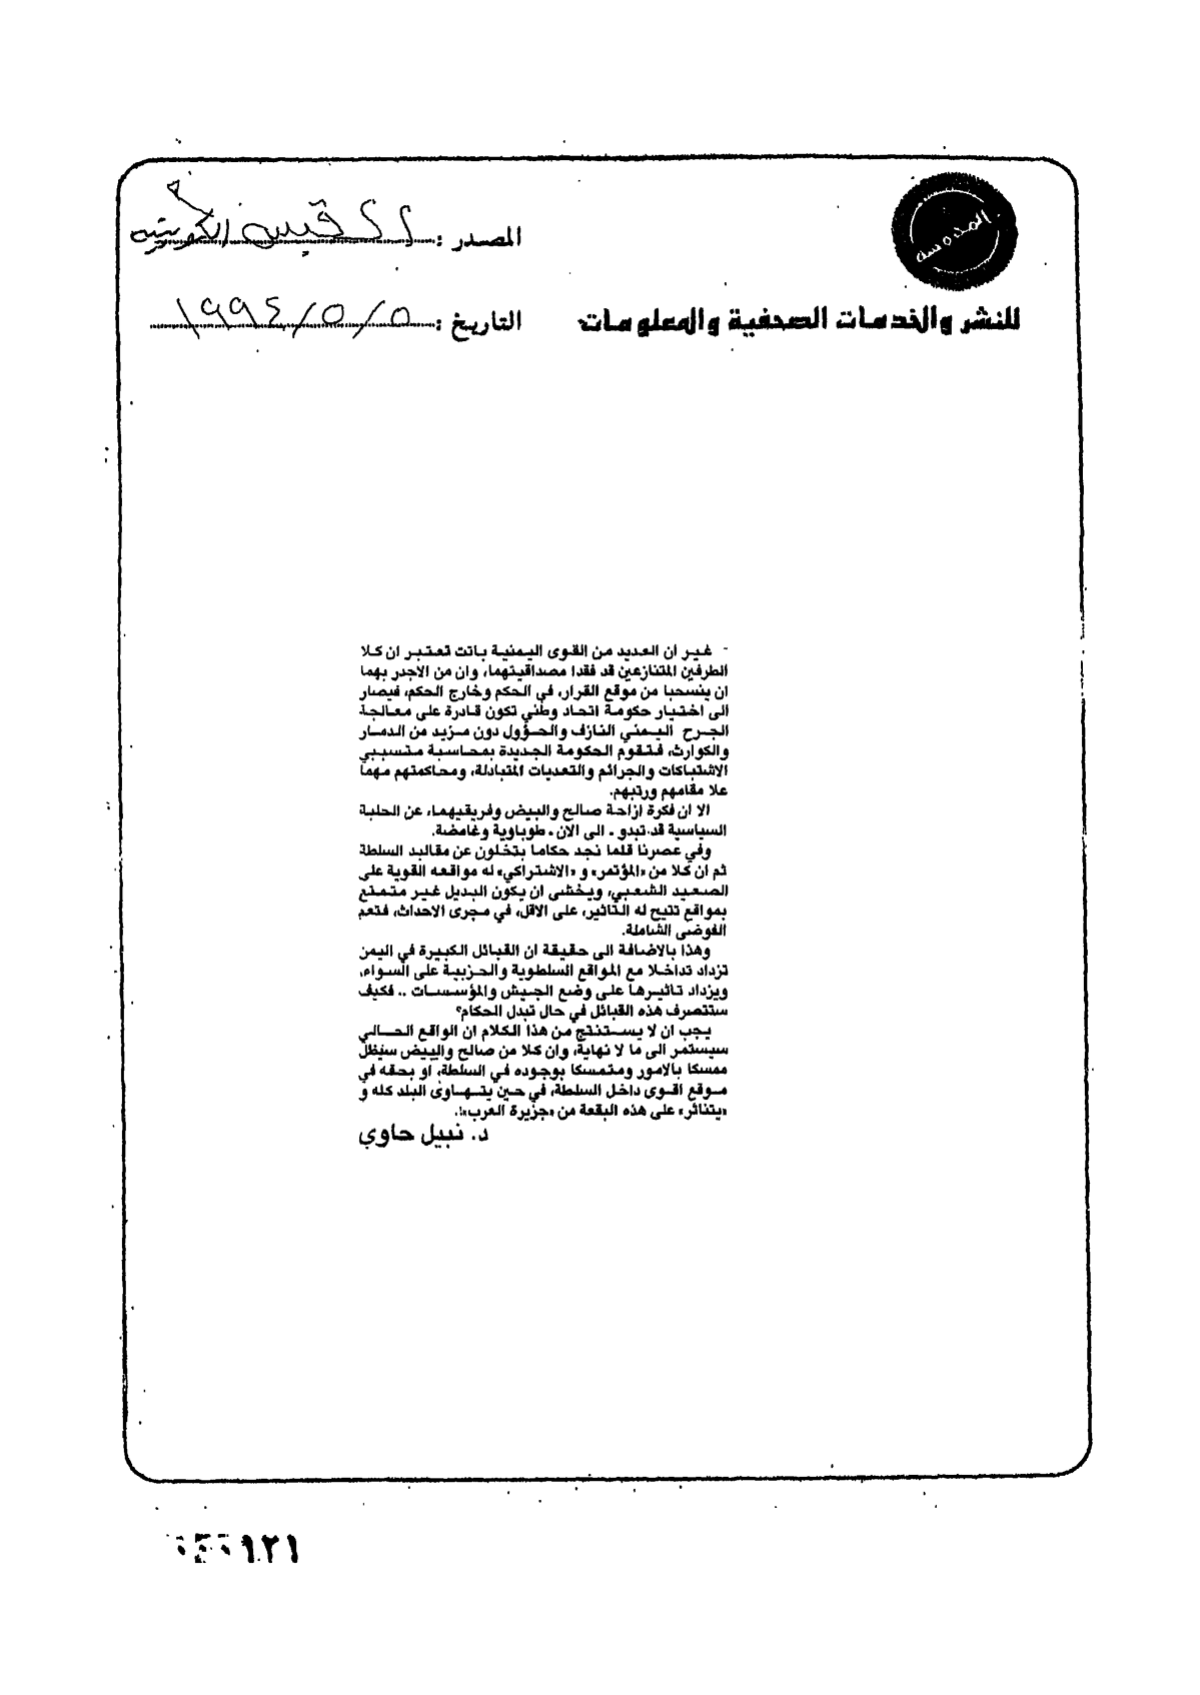 المصدر : القبس الكويتية
للنشر والخدمات الصحفية والمعلومات
التاريخ : ٥/٥/١٩٩٤
- غير ان العديد من القوى اليمنية باتت تعتبر ان كلا
الطرفين المتنازعين قد فقدا مصداقيتهما، وان من الاجدر بهما
ان ينسحبا من موقع القرار، في الحكم وخارج الحكم، فيصار
الى اختيار حكومة اتحاد وطني تكون قادرة على معالجة
الجرح اليمني النازف والحؤول دون مزيد من الدمار
والكوارث، فتقوم الحكومة الجديدة بمحاسبة متسببي
الاشتباكات والجرائم والتعديات المتبادلة، ومحاكمتهم مهما
علا مقامهم ورتبهم.
الا ان فكرة ازاحة صالح والبيض وفريقيهما، عن الحلبة
السياسية قد تبدو - الى الان - طوباوية وغامضة.
وفي عصرنا قلما نجد حكاما يتخلون عن مقاليد السلطة
ثم ان كلا من «المؤتمر» و «الاشتراكي» له مواقعه القوية على
الصعيد الشعبي، ويخشى ان يكون البديل غير متمتع
بمواقع تتيح له التاثير، على الاقل، في مجرى الاحداث، فتعم
الفوضى الشاملة.
وهذا بالاضافة الى حقيقة ان القبائل الكبيرة في اليمن
تزداد تداخلا مع المواقع السلطوية والحزبية على السواء،
ويزداد تاثيرها على وضع الجيش والمؤسسات .. فكيف
ستتصرف هذه القبائل في حال تبدل الحكام؟
يجب ان لا يستنتج من هذا الكلام ان الواقع الحالي
سيستمر الى ما لا نهاية، وان كلا من صالح والبيض سيظل
ممسكا بالامور ومتمسكا بوجوده في السلطة، او بحقه في
موقع اقوى داخل السلطة، في حين يتهاوى البلد كله و
«يتناثر» على هذه البقعة من «جزيرة العرب»!.
د. نبيل حاوي